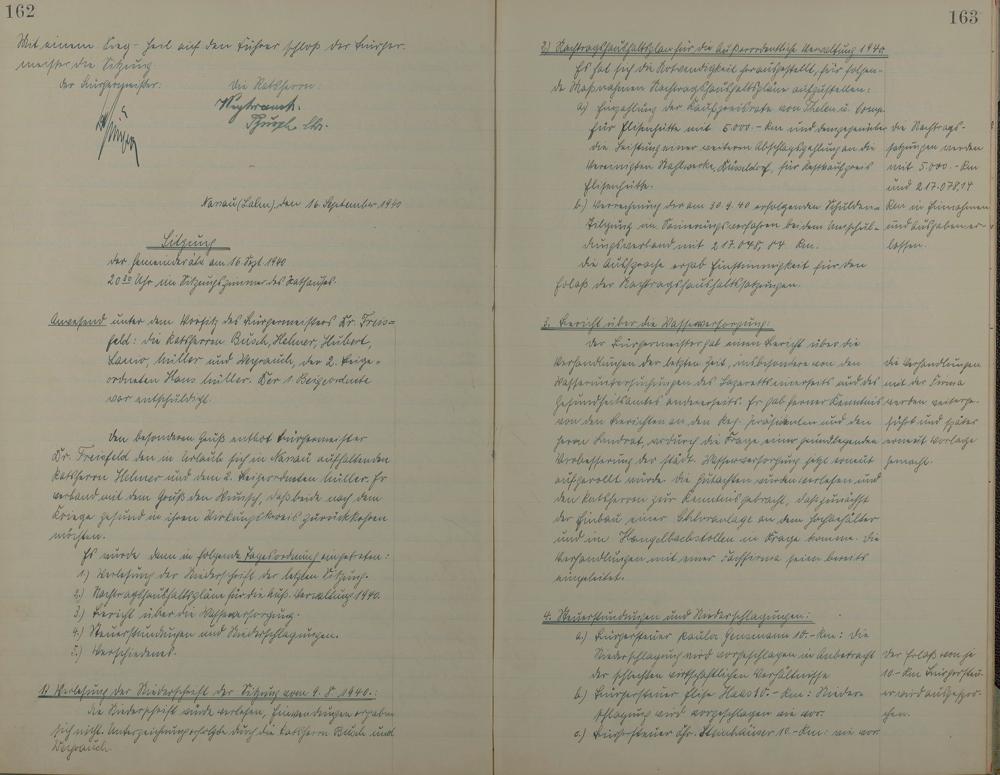 162
Mit einem Sieg-Heil auf den Führer schloß der Bürger-
meister die Sitzung.
Der Bürgermeister: Die Ratsherrn:
Nassau (Lahn), den 16. September 1940
Sitzung
der Gemeinderäte am 16. Sept. 1940
20 30 Uhr im Sitzungszimmer des Rathauses.
Anwesend unter dem Vorsitz des Bürgermeisters Dr. Freis=
feld: die Ratsherren Busch, Helmer,
Müller und Weyrauch, der 2. Beige-
ordneten Hans Müller. Der 1. Beigeordnete
war entschuldigt.
Den besonderen Gruß entbot Bürgermeister
Dr. Freisfeld den im Urlaub sich in Nassau aufhaltenden
Ratsherrn Helmer und dem 2. Beigeordneten Müller. Er
verband mit dem Gruß den Wunsch, daß beide nach dem
Kriege gesund in ihren Wirkungskreis zurückkehren
möchten.
Es wurde dann in folgende Tagesordnung eingetreten:
1.) Verlesung der Niederschrift der letzten Sitzung.
2.) Nachtragshaushaltspläne für die auß. Verwaltung 1940.
3.) Bericht über die Wasserversorgung.
4.) Steuerstundungen und Niederschlagungen.
5.) Verschiedenes.
1) Verlesung der Niederschrift der Sitzung vom 9.8.1940.:
Die Niederschrift wurde verlesen, Einwendungen ergaben
sich nicht. Unterzeichnung erfolgte durch die Ratsherrn Busch und
Weyrauch.
163
2) Nachtragshaushaltsplan für die Außerordentliche Verwaltung 1940
Es hat sich die Notwendigkeit herausgestellt, für folgen-
de Maßnahmen Nachtragshaushaltspläne aufzustellen:
a) Einzahlung der Kaufpreisrate von Thelen u. Comp.
für Elisenhütte mit 5.000.- Rm und demgegenüber
die Leistung einer weiteren Abschlagszahlung an die
Vereinigten Stahlwerke, Düsseldorf, für Restkaufpreis
Elisenhütte.
b.) Verrechnung der am 30.9.40 erfolgenden Schulden-
tilgung im Sanierungsverfahren bei dem Umschul-
dungsverband mit 217.045,04 Rm.
Die Aussprache ergab Einstimmigkeit für den
Erlaß der Nachtragshaushaltssatzungen.
die Nachtrags-
satzungen werden
mit 5.000.- Rm
und 217.078,14
Rm in Einnahmen
und Ausgaben er-
lassen.
3. Bericht über die Wasserversorgung:
Der Bürgermeister gab einen Bericht über die
Verhandlungen der letzten Zeit, insbesondere von den
Wasseruntersuchungen des Lazaretts einerseits und des
Gesundheitsamtes andererseits. Er gab ferner Kenntnis
von den Berichten an den Reg. Präsidenten und den
Herrn Landrat, wodurch die Frage einer grundlegenden
Verbesserung der städt. Wasserversorgung jetzt erneut
aufgerollt würde. Die Gutachten wurden verlesen und
den Ratsherrn zur Kenntnis gebracht, daß zunächst
der Einbau einer Chloranlage an dem Hochbehälter
und im Hangelbachstollen in Frage komme. Die
Verhandlungen mit einer Fachfirma seien bereits
eingeleitet.
die Verhandlungen
mit der Firma
werden weiterge-
führt und später
erneut Vorlage
gemacht.
4. Steuerstundungen und Niederschlagungen:
a.) Bürgersteuer Paula 10.- Rm: Die
Niederschlagung wird vorgeschlagen in Anbetracht
der schlechten wirtschaftlichen Verhältnisse
b.) Bürgersteuer Elise Haas 10.- Rm: Nieder-
schlagung wird vorgeschlagen wie vor.
c.) Bürgersteuer Chr. Steinhäuser 10.- Rm: wie vor
Der Erlaß von je
10.- Rm Bürgersteu-
er wird ausgespro-
chen.